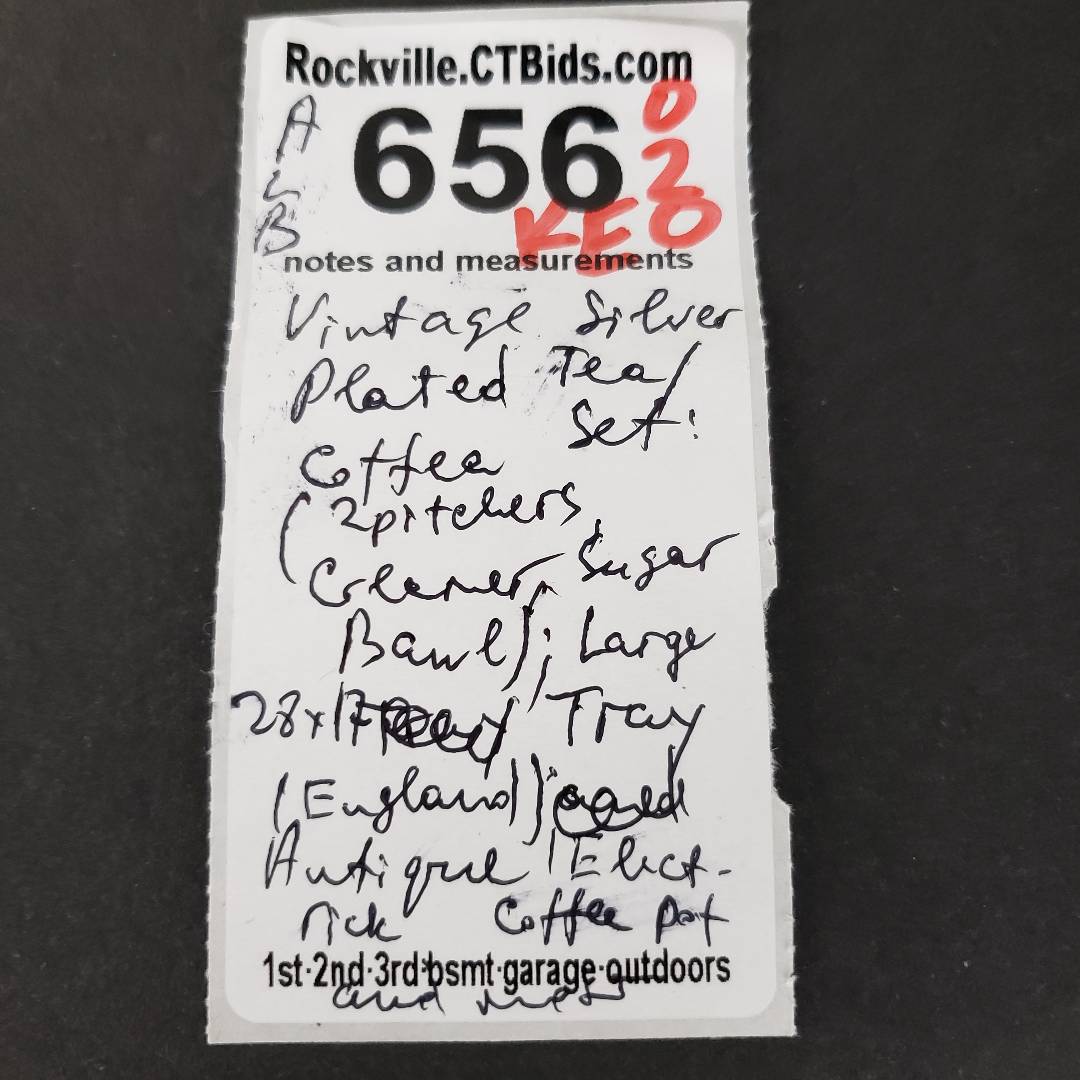 Rockville.CTBids.com
A
L
B
656
0
2
KEO
notes and measurements
Vintage Silver
Plated Tea/
Set:
Coffee
(2pitchers,
Creamer, Sugar
Bawl); Large
28x17 Tray
(England); and
Antique Elect-
rick Coffee pot
1st·2nd·3rd·bsmt·garage·outdoors
and